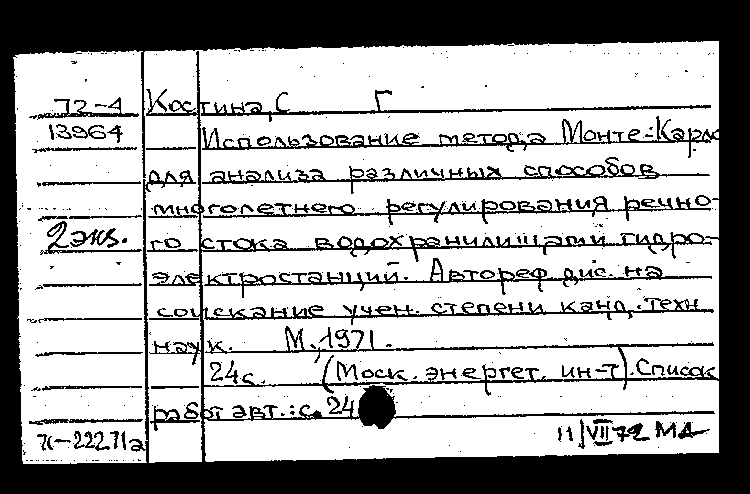 72-4 Костина, С Г
13964 Использование метода Монте-Карло
для анализа различных способов
многолетнего регулирования речно-
2 экз. го стока водохранилищами гидро-
электростанций. Автореф. дис. на
соискание учен. степени канд. техн
наук. М., 1971.
24 с. (Моск. энергет. ин-т). Список
работ авт.: с. 24
71-22271а 11/VII 72 МА